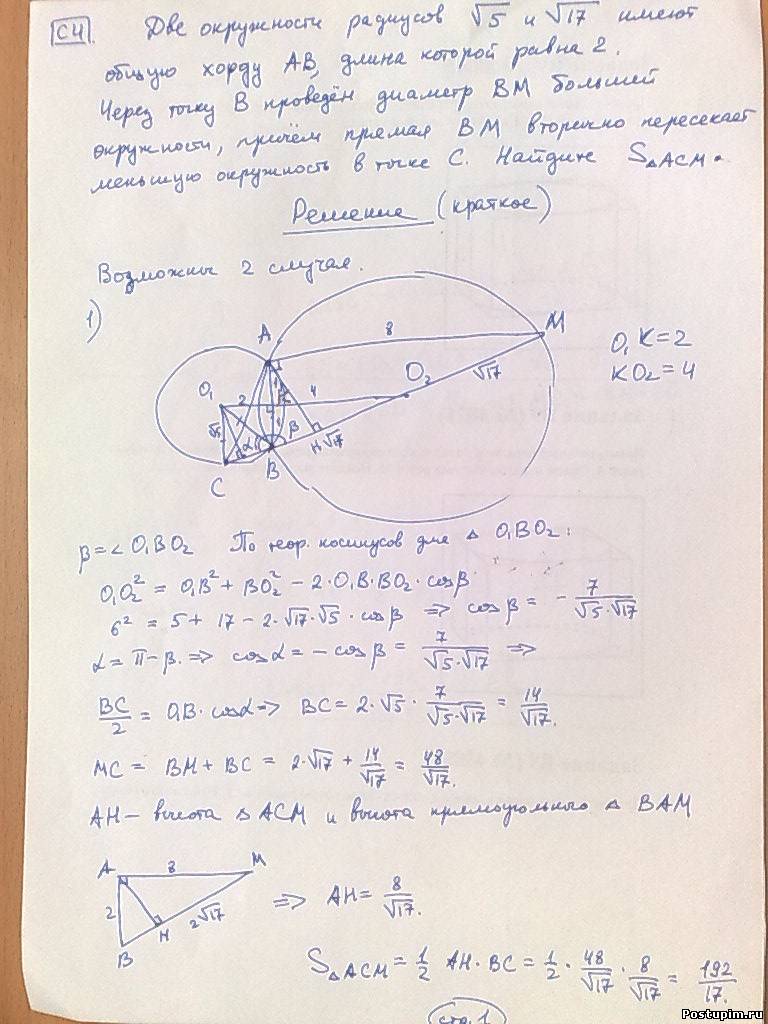 С4. Две окружности радиусов √5 и √17 имеют
общую хорду AB, длина которой равна 2.
Через точку B проведён диаметр BM большей
окружности, причём прямая BM вторично пересекает
меньшую окружность в точке C. Найдите S△ACM.
Решение (краткое)
Возможны 2 случая.
1)
A
8
M
O₁K=2
KO₂=4
O₁
2
K
4
O₂
√17
√5
α
β
H
√17
C
B
β=∠O₁BO₂ По теор. косинусов для △ O₁BO₂:
O₁O₂² = O₁B² + BO₂² − 2·O₁B·BO₂·cosβ
6² = 5 + 17 − 2·√17·√5·cosβ ⇒ cosβ = − 7/(√5·√17)
α = π−β. ⇒ cosα = −cosβ = 7/(√5·√17) ⇒
BC/2 = O₁B·cosα ⇒ BC = 2·√5·7/(√5·√17) = 14/√17.
MC = BM + BC = 2·√17 + 14/√17 = 48/√17.
AH – высота △ ACM и высота прямоугольного △ BAM
A
8
M
2
H
2√17
B
⇒ AH = 8/√17.
S△ACM = 1/2 AH·BC = 1/2·48/√17·8/√17 = 192/17.
стр. 1
Postupim.ru